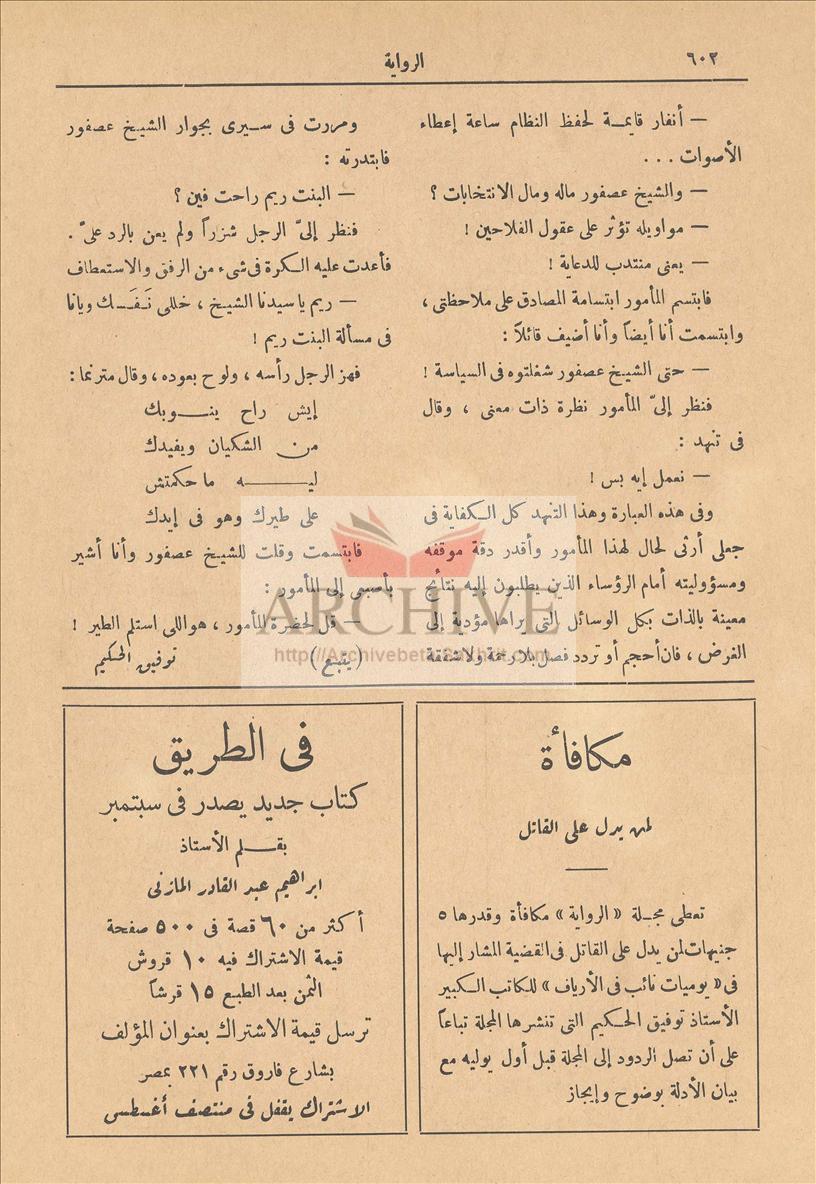 ٦٠٢
الرواية
— أنفار قايمة لحفظ النظام ساعة إعطاء
الأصوات ...
— والشيخ عصفور ماله ومال الانتخابات ؟
— مواويله تؤثر على عقول الفلاحين !
— يعنى منتدب للدعاية !
فابتسم المأمور ابتسامة المصادق على ملاحظتى ،
وابتسمت أنا أيضاً وأنا أضيف قائلاً :
— حتى الشيخ عصفور شغلتوه فى السياسة !
فنظر إلىّ المأمور نظرة ذات معنى ، وقال
فى تنهد :
— نعمل إيه بس !
وفى هذه العبارة وهذا التنهد كل الكفاية فى
جعلى أرثى لحال لهذا المأمور وأقدر دقة موقفه
ومسؤوليته أمام الرؤساء الذين يطلبون إليه نتائج
معينة بالذات بكل الوسائل التى يراها مؤدية إلى
الغرض ، فان أحجم أو تردد فصل بلا رحمة ولا شفقة
ومررت فى سيرى بجوار الشيخ عصفور
فابتدرته :
— البنت ريم راحت فين ؟
فنظر إلىّ الرجل شزراً ولم يعن بالرد علىّ .
فأعدت عليه الكرة فى شىء من الرفق والاستعطاف
— ريم يا سيدنا الشيخ ، خللى نَفَسك ويانا
فى مسألة البنت ريم !
فهز الرجل رأسه ، ولوح بعوده ، وقال مترنما :
إيش راح ينوبك
من الشكيان ويفيدك
ليه ما حكمتش
على طيرك وهو فى إيدك
فابتسمت وقلت للشيخ عصفور وأنا أشير
بأصبعى إلى المأمور :
— قل لحضرة المأمور ، هو اللى استلم الطير !
( يتبع ) توفيق الحكيم
ARCHIVE
مكافأة
لمن يدل على القاتل
تعطى مجلة « الرواية » مكافأة وقدرها ٥
جنيهات لمن يدل على القاتل فى القضية المشار إليها
فى « يوميات نائب فى الأرياف » للكاتب الكبير
الأستاذ توفيق الحكيم التى تنشرها المجلة تباعاً
على أن تصل الردود إلى المجلة قبل أول يوليه مع
بيان الأدلة بوضوح وإيجاز
فى الطريق
كتاب جديد يصدر فى سبتمبر
بقلم الأستاذ
ابراهيم عبد القادر المازنى
أكثر من ٦٠ قصة فى ٥٠٠ صفحة
قيمة الاشتراك فيه ١٠ قروش
الثمن بعد الطبع ١٥ قرشاً
ترسل قيمة الاشتراك بعنوان المؤلف
بشارع فاروق رقم ٢٢١ بمصر
الاشتراك يقفل فى منتصف أغسطس